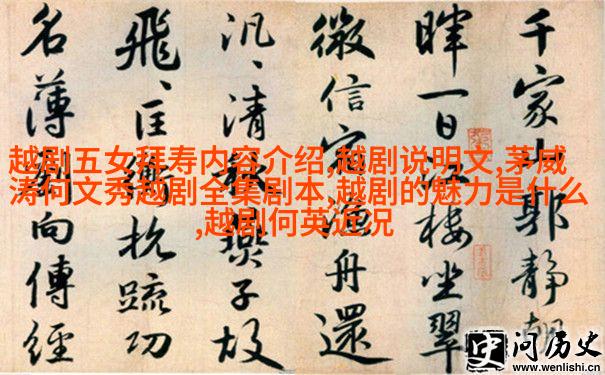 越剧五女拜寿内容介绍,越剧说明文,茅威
涛何文秀越剧全集剧本,越剧的魅力是什么
,越剧何英近况
千家山郭靜朝
暉一日江樓坐翠
微信宿漁舟還
汎、清秋燕子故
飛、匡衡抗疏功
名薄劉向傳經
史问历史
www.wenlishi.cn